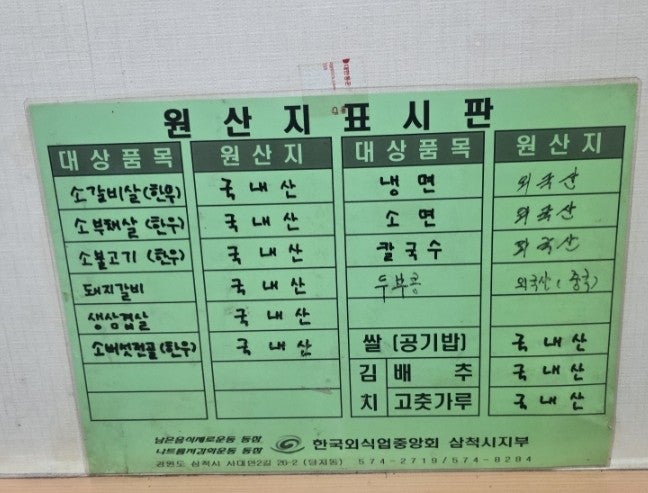 원산지표시판
대상품목 원산지 대상품목 원산지
소갈비살(한우) 국내산 냉면 외국산
소부채살(한우) 국내산 소면 외국산
소불고기(한우) 국내산 칼국수 외국산
돼지갈비 국내산 두부콩 외국산(중국)
생삼겹살 국내산
소버섯전골(한우) 국내산 쌀(공기밥) 국내산
김치 배추 국내산
고춧가루 국내산
남은음식제로운동 동참
나트륨저감화운동 동참
한국외식업중앙회 삼척시지부
강원도 삼척시 사대안2길 20-2 (당저동) 574-2719/574-8284